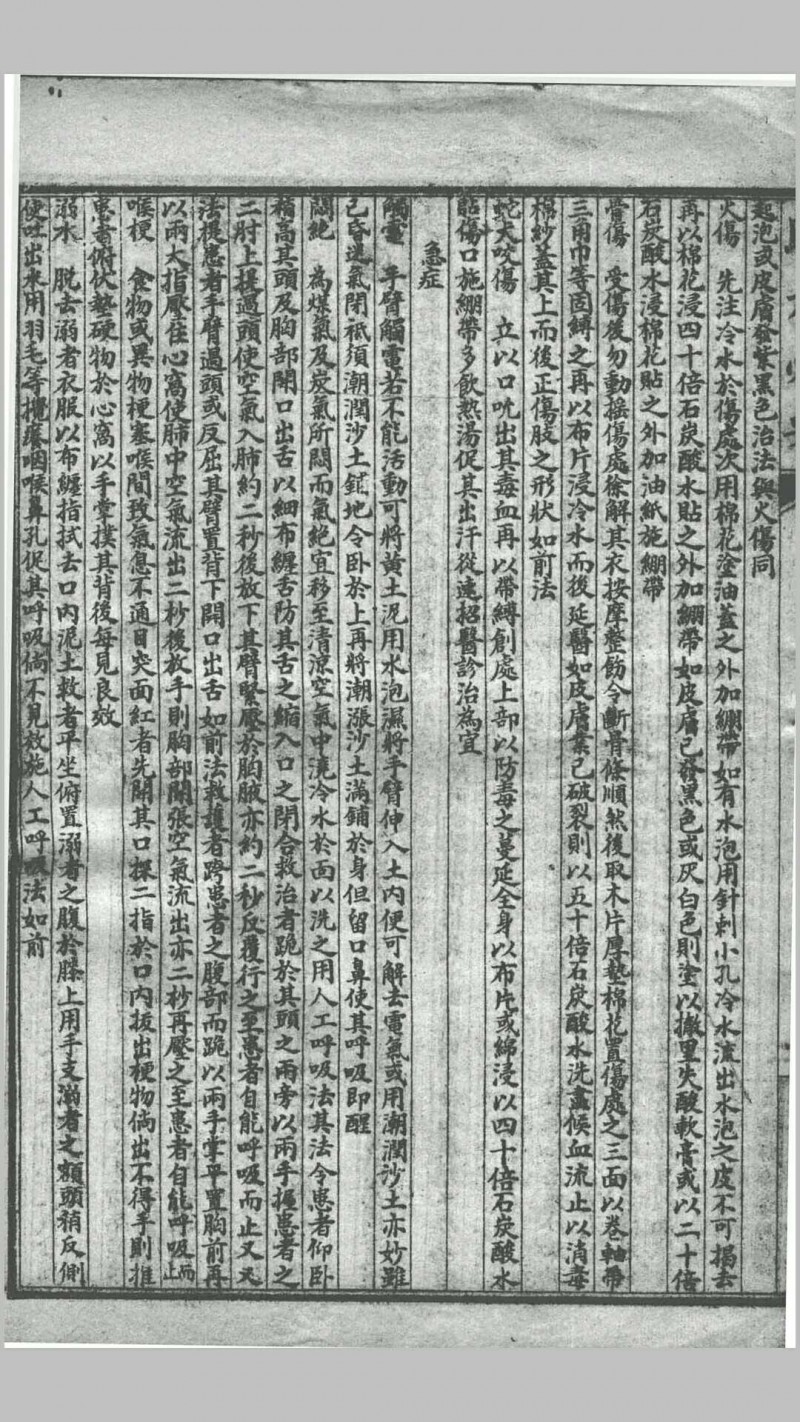 起泡或皮膚發紫黑色治法與火傷同
火傷　先注冷水於傷處次用棉花塗油蓋之外加綳帶如有水泡用針刺小孔冷水流出水泡之皮不可揭去
再以棉花浸四十倍石炭酸水貼之外加綳帶如皮膚已發黑色或灰白色則塗以撒里失酸軟膏或以二十倍
石炭酸水浸棉花貼之外加油紙施綳帶
骨傷　受傷後勿動搖傷處徐解其衣按摩整飭令斷骨條順然後取木片厚墊棉花置傷處之三面以卷軸帶
三用巾等固縛之再以布片浸冷水而後延醫如皮膚業已破裂則以五十倍石炭酸水洗盡候血流止以消毒
棉紗蓋其上而後正傷肢之形狀如前法
蛇犬咬傷　立以口吮出其毒血再以帶縛創處上部以防毒之蔓延全身以布片或綿浸以四十倍石炭酸水
貼傷口施綳帶多飲熱湯促其出汗從速招醫診治為宜
急症
觸電　手臂觸電若不能活動可將黃土泥用水泡濕將手臂伸入土內便可解去電氣或用潮潤沙土亦妙雖
已昏迷氣閉祗須潮潤沙土鋪地令卧於上再將潮漲沙土滿鋪於身但留口鼻使其呼吸即醒
悶絶　為煤氣及炭氣所悶而氣絶宜移至清涼空氣中澆冷水於面以洗之用人工呼吸法其法令患者仰卧
稍高其頭及胸部開口出舌以細布纏舌防其舌之縮入口之閉合救治者跪於其頭之兩旁以兩手握患者之
二肘上提過頭使空氣入肺約二秒後放下其臂緊壓於胸腋亦約二秒反覆行之至患者自能呼吸而止又
法提患者手臂過頭或反屈其臂置背下開口出舌如前法救護者跨患者之腹部而跪以兩手掌平置胸前再
以兩大指壓住心窩使肺中空氣流出二秒後放手則胸部開張空氣流出亦二秒再壓之至患者自能呼吸而止
喉梗　食物或異物梗塞喉間致氣息不通目突面紅者先開其口探二指於口內拔出梗物倘出不得手則推
患者俯伏墊硬物於心窩以手掌撲其背後每見良效
溺水　脱去溺者衣服以布纏指拭去口內泥土救者平坐俯置溺者之腹於膝上用手支溺者之額頭稍反側
使吐出水用羽毛等攪癢咽喉鼻孔促其呼吸倘不見效施人工呼吸法如前